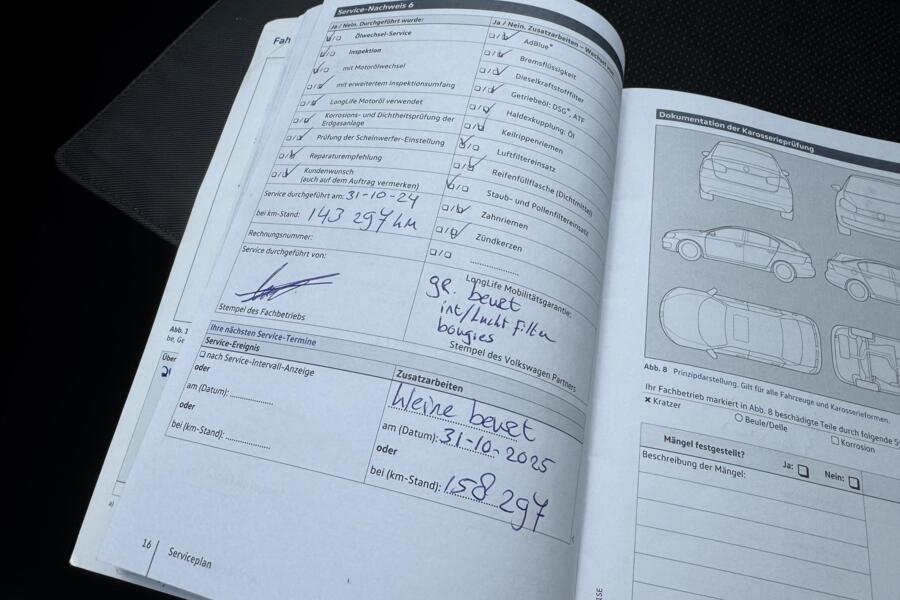 Fah
Service-Nachweis 6
Ja / Nein. Durchgeführt wurde:
Ölwechsel-Service
Inspektion
mit Motorölwechsel
mit erweitertem Inspektionsumfang
LongLife Motoröl verwendet
Korrosions- und Dichtheitsprüfung der
Erdgasanlage
Prüfung der Scheinwerfer-Einstellung
Reparaturempfehlung
Kundenwunsch
(auch auf dem Auftrag vermerken)
Service durchgeführt am: 31-10-24
bei km-Stand: 143 297 km
Rechnungsnummer:
Service durchgeführt von:
Stempel des Fachbetriebs
Ja / Nein. Zusatzarbeiten – Wechsel von:
AdBlue®
Bremsflüssigkeit
Dieselkraftstofffilter
Getriebeöl: DSG®, ATF
Haldexkupplung: Öl
Keilrippenriemen
Luftfiltereinsatz
Reifenfüllflasche (Dichtmittel)
Staub- und Pollenfiltereinsatz
Zahnriemen
Zündkerzen
LongLife Mobilitätsgarantie:
gr. beurt
int/Lucht Filter
bougies
Stempel des Volkswagen Partners
Ihre nächsten Service-Termine
Service-Ereignis
nach Service-Intervall-Anzeige
oder
am (Datum):
oder
bei (km-Stand):
Zusatzarbeiten
kleine beurt
am (Datum): 31-10-2025
oder
bei (km-Stand): 158 297
16 Serviceplan
Abb. 1
be, Ge
Über
Dokumentation der Karosserieprüfung
Abb. 8 Prinzipdarstellung. Gilt für alle Fahrzeuge und Karosserieformen.
Ihr Fachbetrieb markiert in Abb. 8 beschädigte Teile durch folgende S
Kratzer
Beule/Delle
Korrosion
Mängel festgestellt? Ja: Nein:
Beschreibung der Mängel: